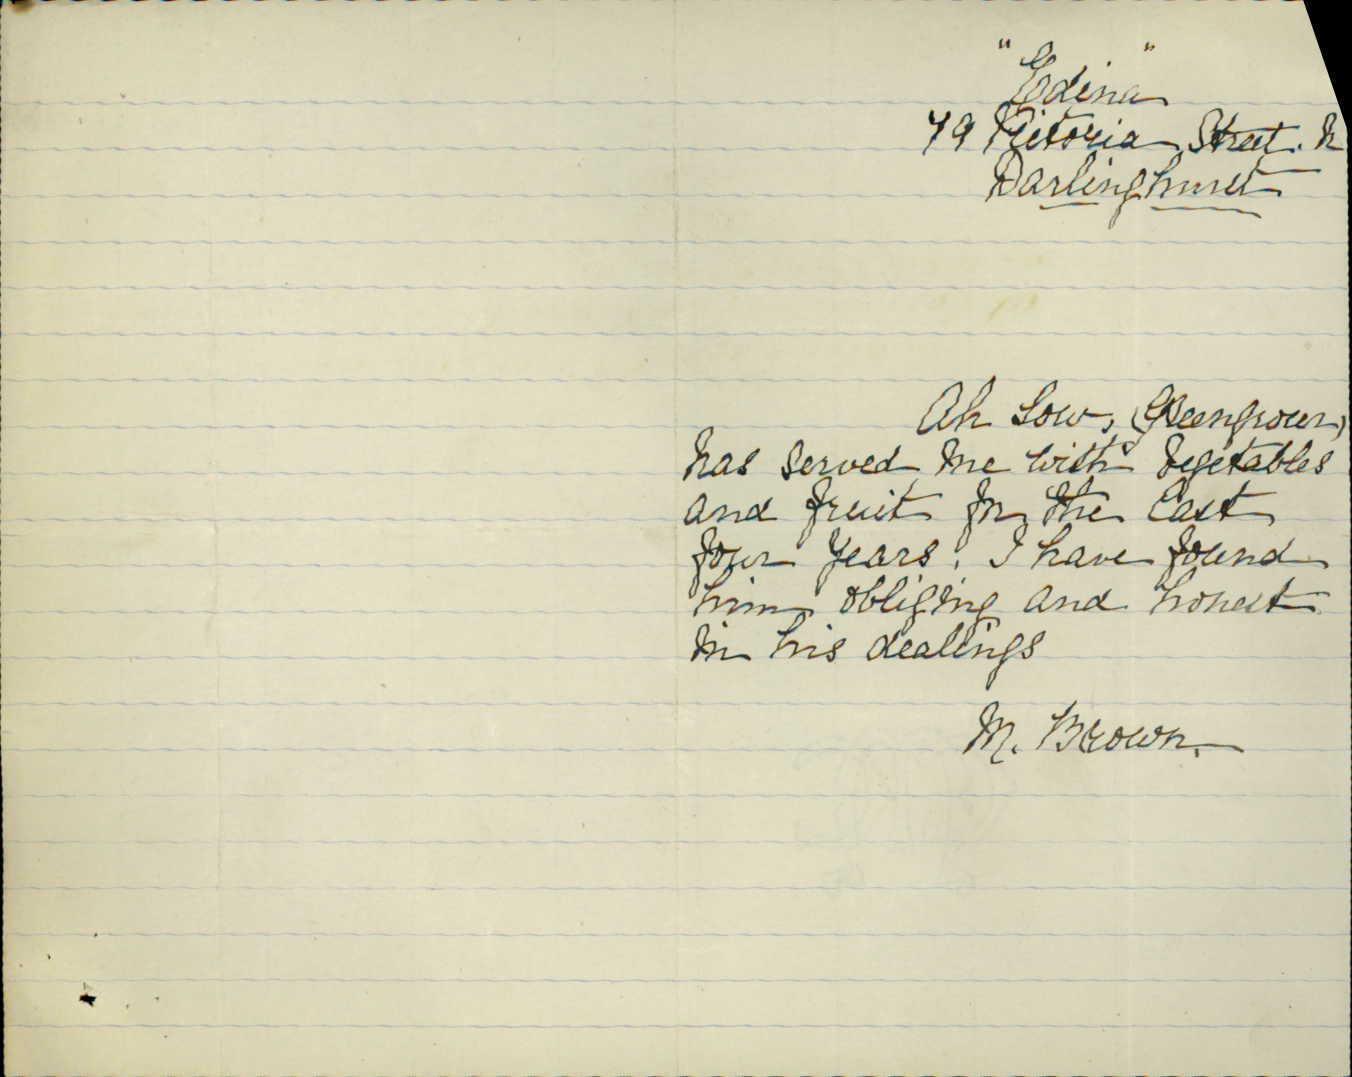 "Edina"
79 Victoria Street. N
Darlinghurst
Ah Low, (Greengrocer)
has served me with vegetables
and fruit for the last
four years. I have found
him obliging and honest
in his dealings
M. Brown.